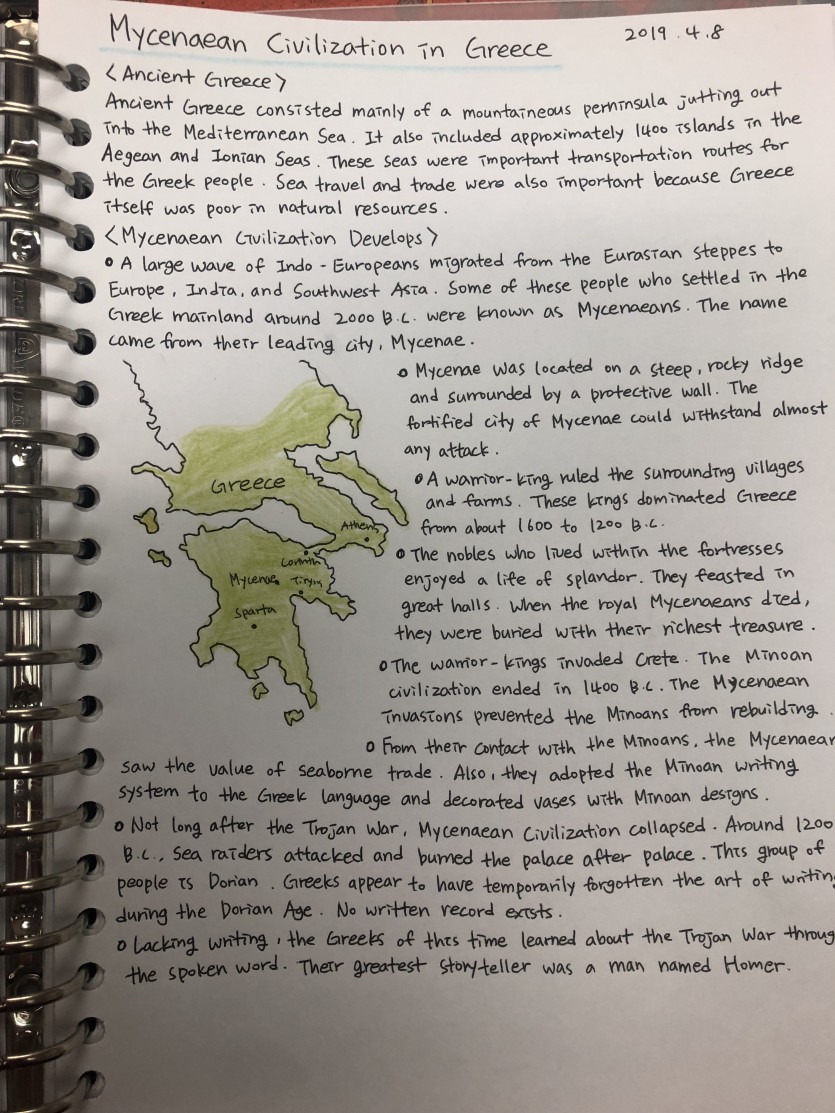 Mycenaean Civilization in Greece
2019.4.8
<Ancient Greece>
Ancient Greece consisted mainly of a mountaineous perninsula jutting out
into the Mediterranean Sea. It also included approximately 1400 islands in the
Aegean and Ionian Seas. These seas were important transportation routes for
the Greek people. Sea travel and trade were also important because Greece
itself was poor in natural resources.
<Mycenaean Civilization Develops>
• A large wave of Indo-Europeans migrated from the Eurasian steppes to
Europe, India, and Southwest Asia. Some of these people who settled in the
Greek mainland around 2000 B.C. were known as Mycenaeans. The name
came from their leading city, Mycenae.
• Mycenae was located on a steep, rocky ridge
and surrounded by a protective wall. The
fortified city of Mycenae could withstand almost
any attack.
• A warrior-king ruled the surrounding villages
and farms. These kings dominated Greece
from about 1600 to 1200 B.C.
• The nobles who lived within the fortresses
enjoyed a life of splandor. They feasted in
great halls. When the royal Mycenaeans died,
they were buried with their richest treasure.
• The warrior-kings invaded Crete. The Minoan
civilization ended in 1400 B.C. The Mycenaean
invasions prevented the Minoans from rebuilding.
• From their contact with the Minoans, the Mycenaean
saw the value of seaborne trade. Also, they adopted the Minoan writing
system to the Greek language and decorated vases with Minoan designs.
• Not long after the Trojan War, Mycenaean Civilization collapsed. Around 1200
B.C., sea raiders attacked and burned the palace after palace. This group of
people is Dorian. Greeks appear to have temporarily forgotten the art of writing
during the Dorian Age. No written record exists.
• Lacking writing, the Greeks of this time learned about the Trojan War throug
the spoken word. Their greatest storyteller was a man named Homer.
Greece
Athens
Corinth
Mycenae
Tiryns
Sparta